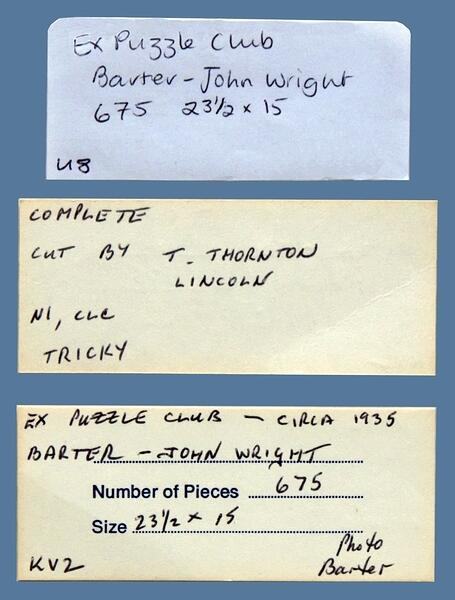 Ex Puzzle Club
Barter - John Wright
675 23½ x 15
U8
COMPLETE
CUT BY T. THORNTON
LINCOLN
NI, CLC
TRICKY
EX PUZZLE CLUB - CIRCA 1935
BARTER - JOHN WRIGHT
Number of Pieces 675
Size 23½ x 15
Photo
KV2 Barter